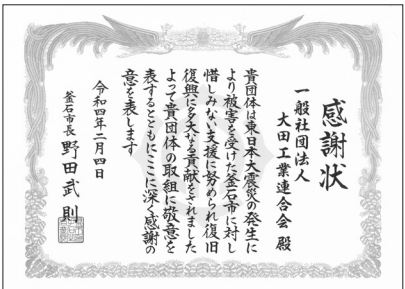 感謝状
一般社団法人
大田工業連合会 殿
貴団体は東日本大震災の発生に
より被害を受けた釜石市に対し
惜しみない支援に努められ復旧
復興に多大なる貢献をされました
よって貴団体の取組に敬意を
表するとともにここに深く感謝の
意を表します
令和四年二月四日
釜石市長 野田武則